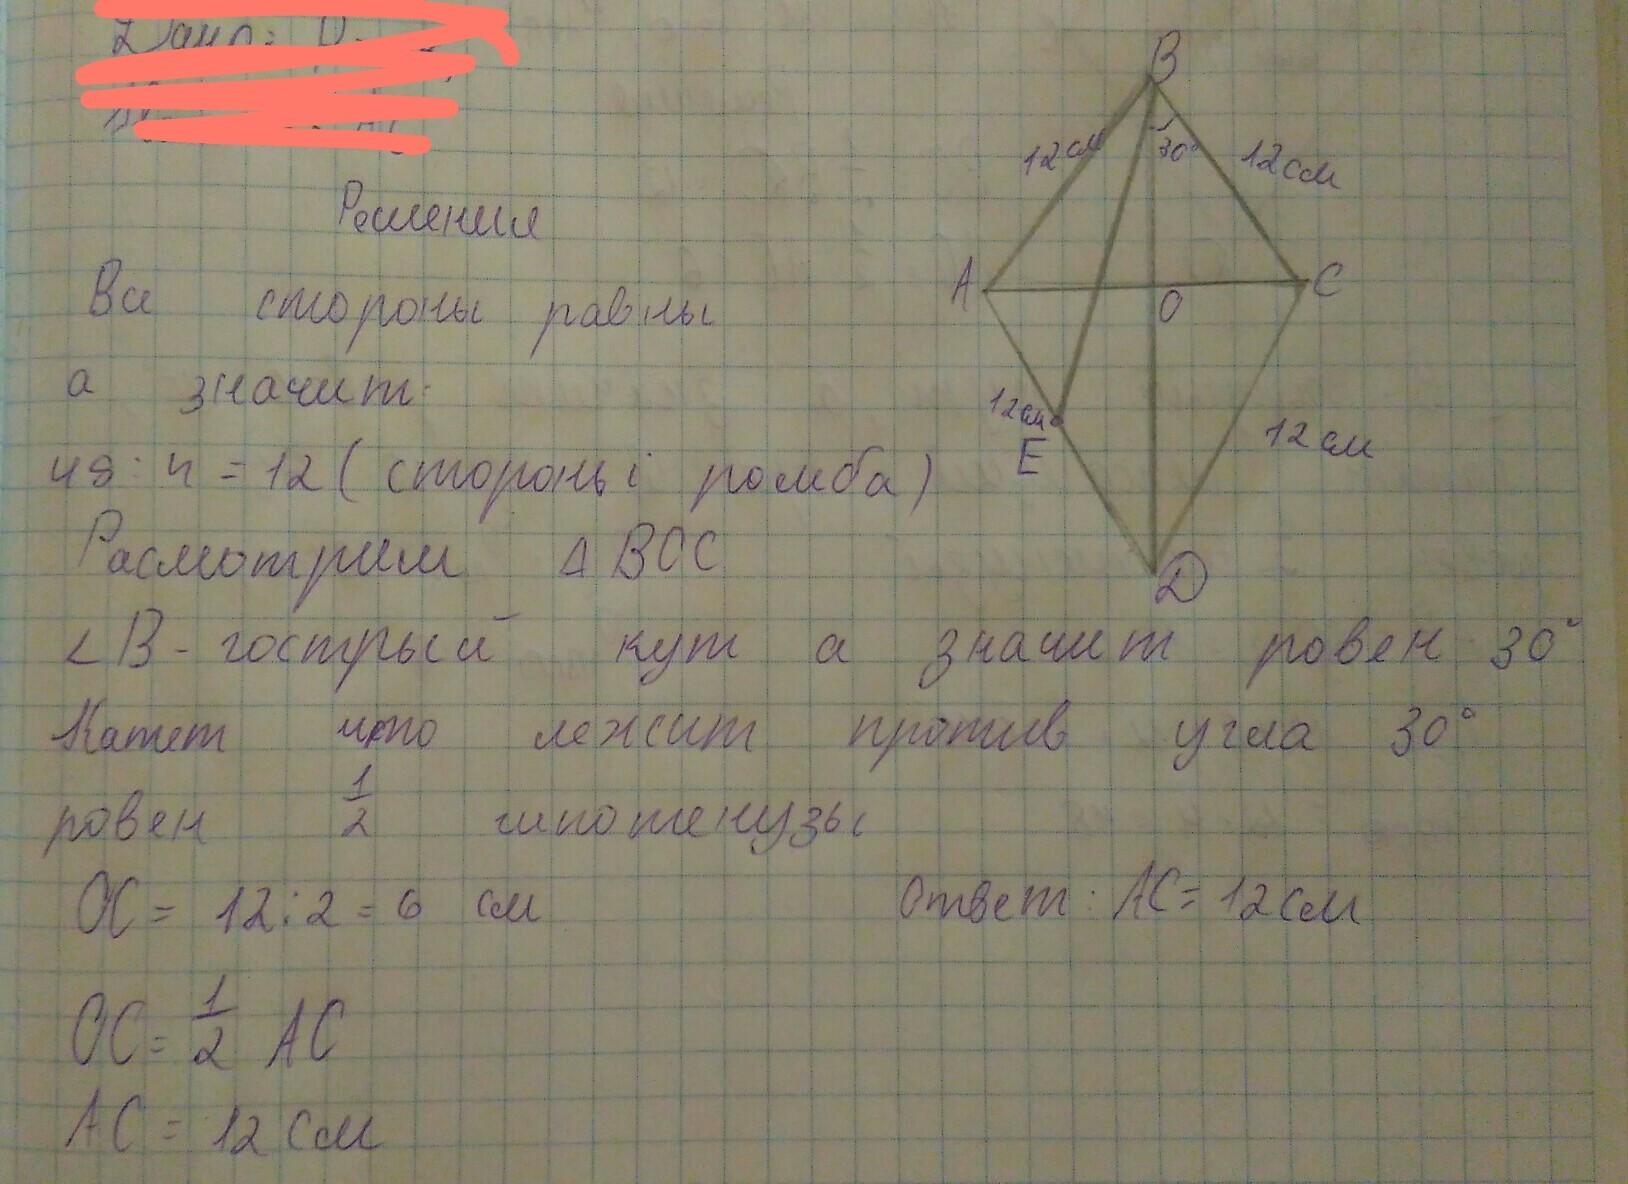 Дано:
Решения
Все стороны равны
а значит:
48 : 4 = 12 ( стороны ромба )
Расмотрим Δ BOC
∠B - гострый кут а значит ровен 30°
Катет что лежит против угла 30°
ровен 1/2 гипотенузы
OC = 12 : 2 = 6 см
Ответ : AC = 12 см
OC = 1/2 AC
AC = 12 см
B
12 см
30°
12 см
A
O
C
12 см
E
12 см
D